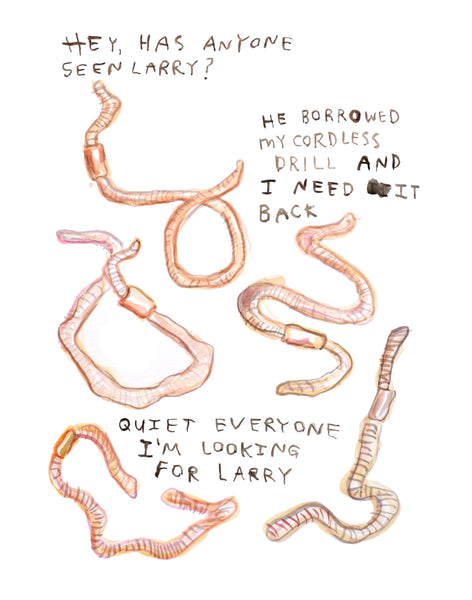 HEY, HAS ANYONE
SEEN LARRY?
HE BORROWED
MY CORDLESS
DRILL AND
I NEED IT
BACK
QUIET EVERYONE
I'M LOOKING
FOR LARRY